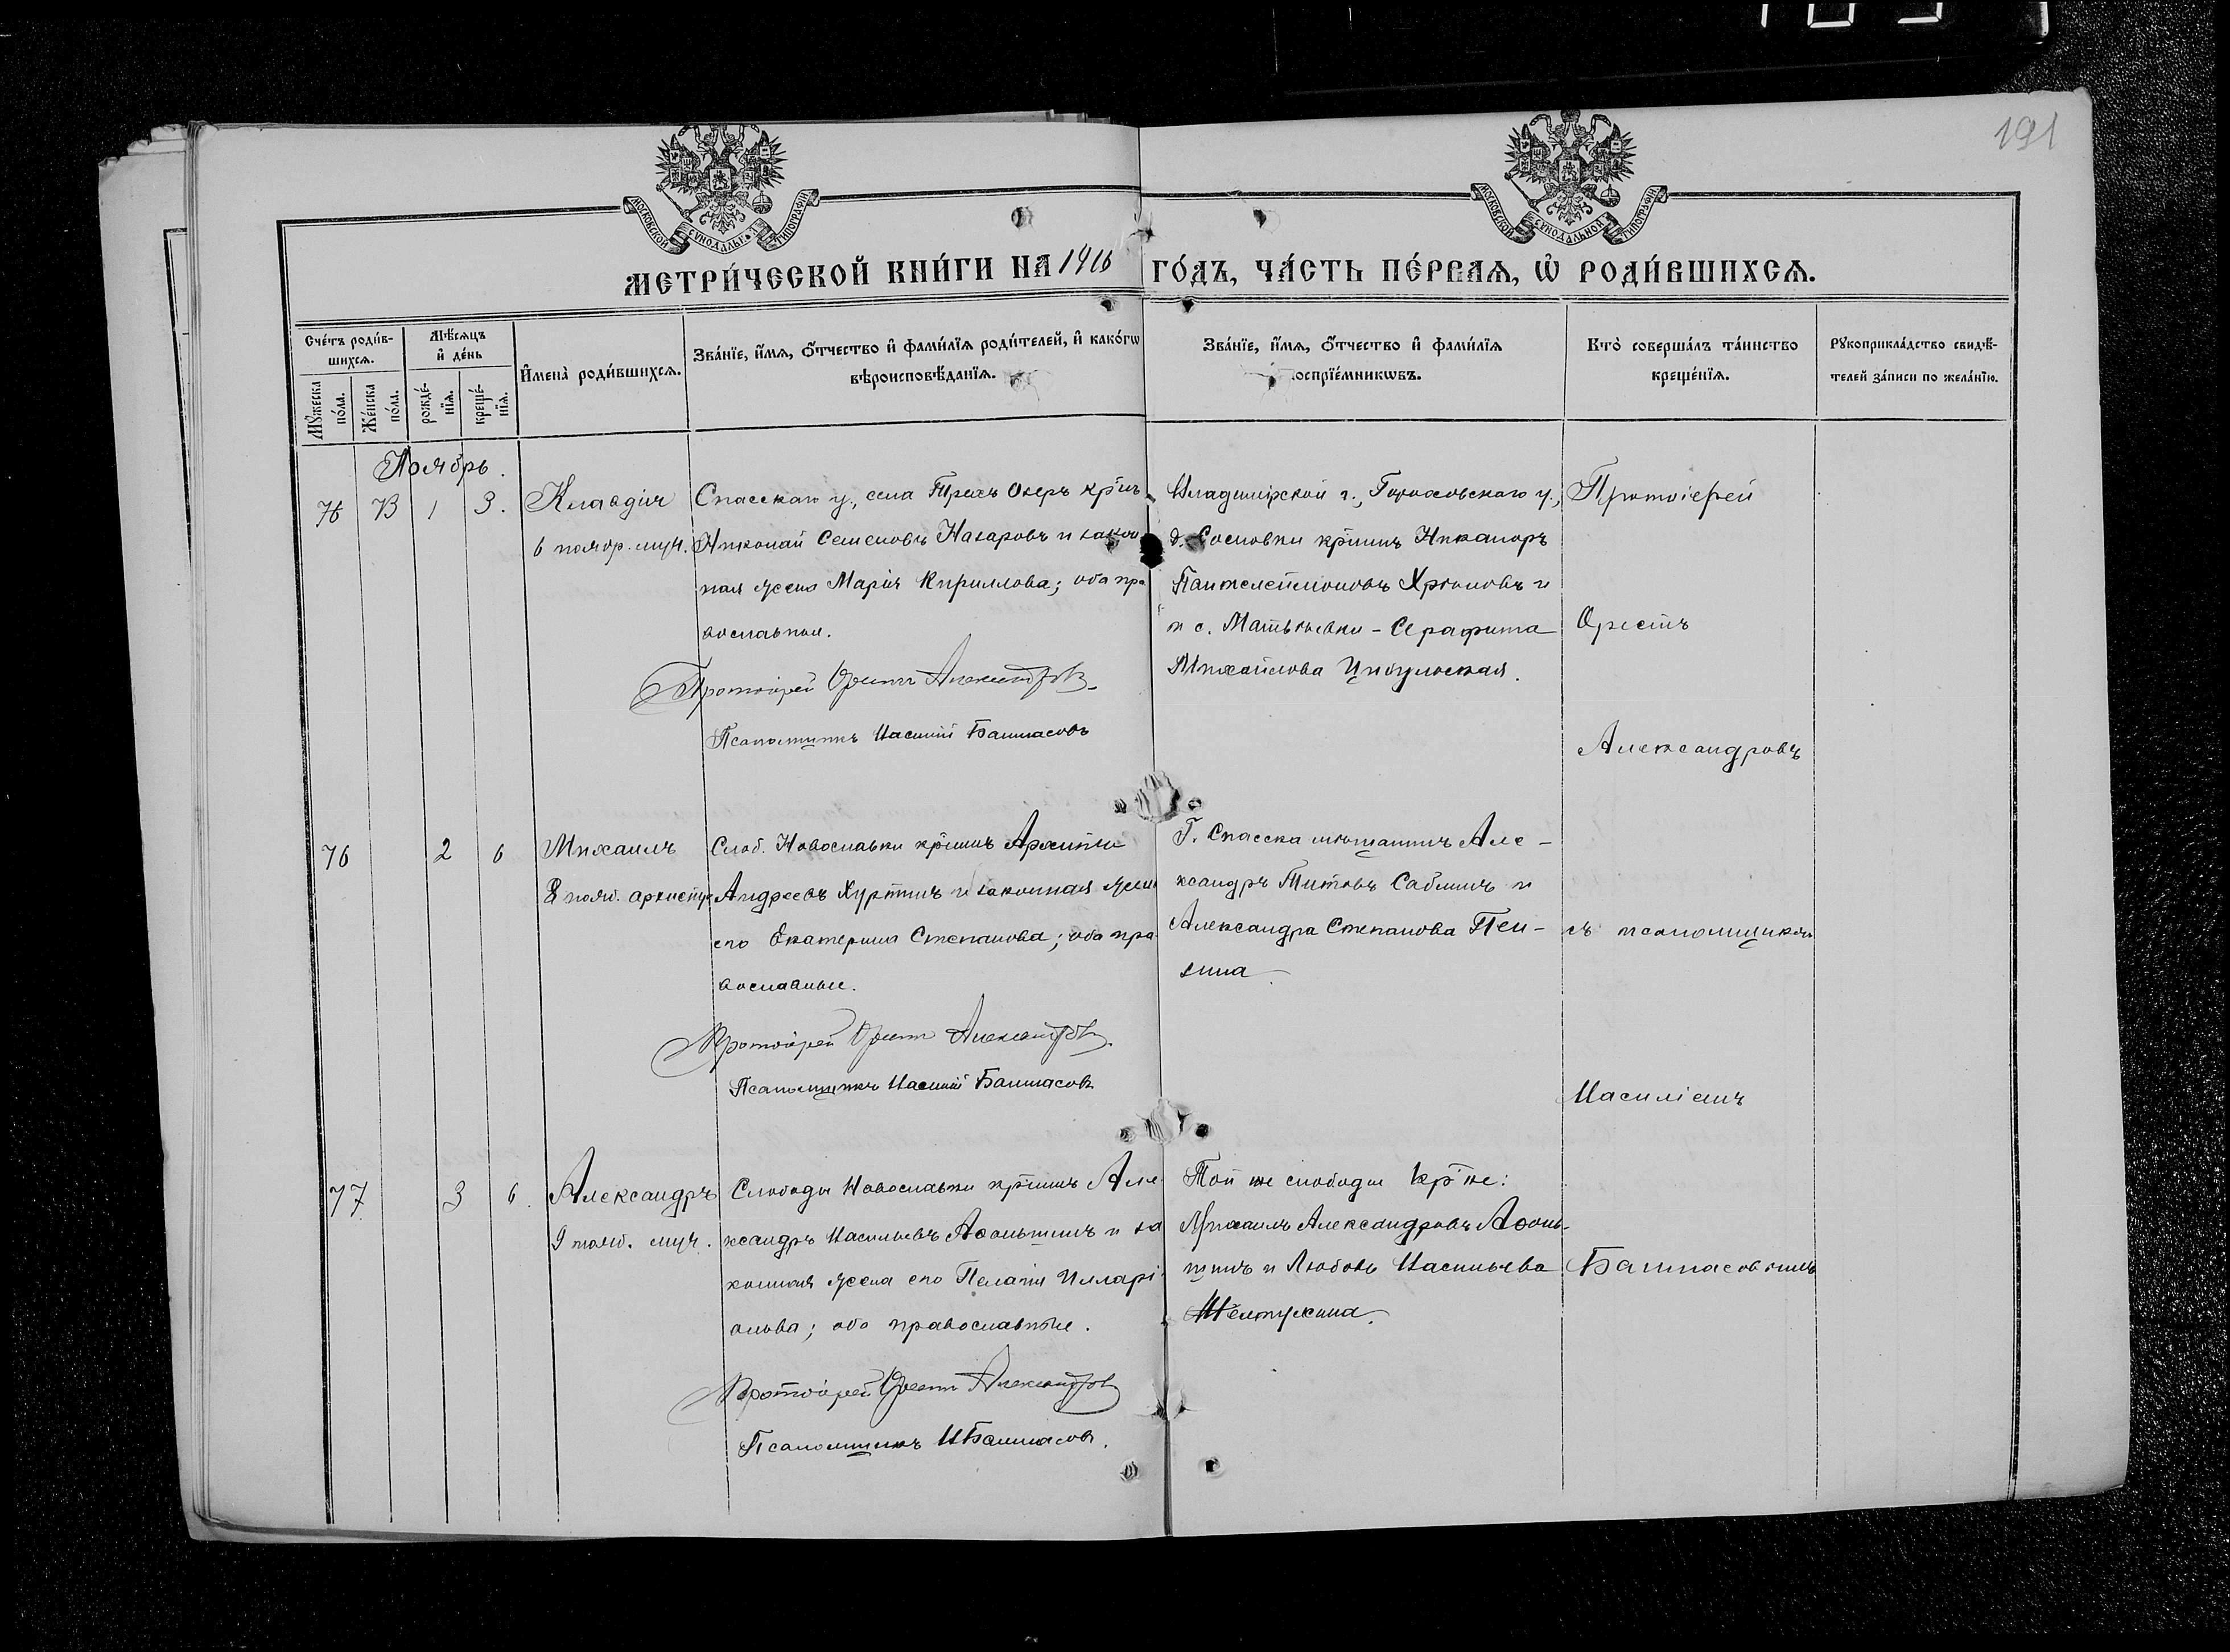 191
МОСКОВСКОЙ СѴНОДАЛЬНОЙ ТИПОГРАФІИ
МОСКОВСКОЙ СѴНОДАЛЬНОЙ ТИПОГРАФІИ
МЕТРИ́ЧЕСКОЙ КНИ́ГИ НА 1916 ГО́ДЪ, ЧА́СТЬ ПЕ́РВАѦ, Ѡ҆ РОДИ́ВШИХСѦ.
Сче́тъ роди́в-
шихсѧ.
Мꙋ́жеска по́ла.
Же́нска по́ла.
Мѣ́сѧцъ
и҆ де́нь
рожде́-
нїѧ.
креще́-
нїѧ.
И҆мена̀ роди́вшихсѧ.
Зва́нїе, и҆́мѧ, ѻ҆́тчество и҆ фами́лїѧ роди́телей, и҆ како́гѡ
вѣроисповѣ́данїѧ.
Зва́нїе, и҆́мѧ, ѻ҆́тчество и҆ фами́лїѧ
оспрїе́мникѡвъ.
Кто̀ соверша́лъ та́инство
креще́нїѧ.
Рꙋкоприкла́дство свидѣ́-
телей за́писи по жела́нїю.
Ноябрь.
73 1 3. Клавдія
6 ноябр. муч.
Спасскаго у., села Трехъ Озеръ кр-нъ
Николай Семеновъ Назаровъ и закон
ная жена Марія Кириллова; оба пра
вославныя.
Протоіерей Орестъ Александровъ
Псаломщикъ Василій Башмасовъ
Владимірской г., Гороховскаго у.,
д. Сосновки кр-нинъ Никаноръ
Пантелеймоновъ Хромовъ и
с. Матвѣевки - Серафима
Михайлова Цибульская.
Протоіерей
Орестъ
Александровъ
76 2 6 Михаилъ
8 нояб. архистр
Слоб. Новославки кр-нинъ Архипъ
Андреевъ Хуртинъ и законная жена
его Екатерина Степанова; оба пра-
вославные.
Протоіерей Орестъ Александровъ
Псаломщикъ Василій Башмасовъ
Г. Спасска мѣщанинъ Але-
ксандръ Титовъ Саблинъ и
Александра Степанова Пен-
зина
съ псаломщикомъ
Василіемъ
77 3 6. Александръ
9 нояб. муч.
Слободы Новославки кр-нинъ Але
ксандръ Васильевъ Афонькинъ и за
конная жена его Пелагія Иларі-
онова; оба православные.
Протоіерей Орестъ Александровъ
Псаломщикъ В Башмасовъ.
Той же слободы кр-не:
Михаилъ Александровъ Афонь-
кинъ и Любовь Васильева
Желтухина.
Башмасовымъ